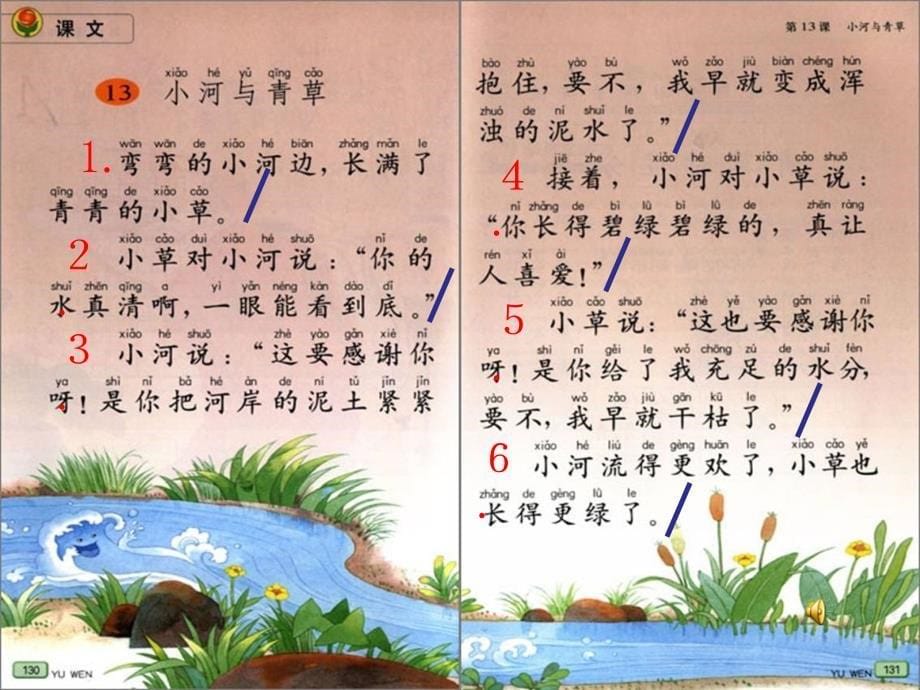 课文
13
xiǎo hé yǔ qīng cǎo
小河与青草
wān wān de xiǎo hé biān zhǎng mǎn le
1.弯弯的小河边,长满了
qīng qīng de xiǎo cǎo
青青的小草。
xiǎo cǎo duì xiǎo hé shuō nǐ de
2 小草对小河说:“你的
shuǐ zhēn qīng a yì yǎn néng kàn dào dǐ
水真清啊,一眼能看到底。”
xiǎo hé shuō zhè yào gǎn xiè nǐ
3 小河说:“这要感谢你
ya shì nǐ bǎ hé àn de ní tǔ jǐn jǐn
呀!是你把河岸的泥土紧紧
130 YU WEN
第13课 小河与青草
bào zhù yào bù wǒ zǎo jiù biàn chéng hún
抱住,要不,我早就变成浑
zhuó de ní shuǐ le
浊的泥水了。”
jiē zhe xiǎo hé duì xiǎo cǎo shuō
4 接着,小河对小草说:
nǐ zhǎng de bì lǜ bì lǜ de zhēn ràng
“你长得碧绿碧绿的,真让
rén xǐ ài
人喜爱!”
xiǎo cǎo shuō zhè yě yào gǎn xiè nǐ
5 小草说:“这也要感谢你
ya shì nǐ gěi le wǒ chōng zú de shuǐ fèn
呀!是你给了我充足的水分,
yào bù wǒ zǎo jiù gān kū le
要不,我早就干枯了。”
xiǎo hé liú de gèng huān le xiǎo cǎo yě
6 小河流得更欢了,小草也
zhǎng de gèng lǜ le
长得更绿了。
YU WEN 131